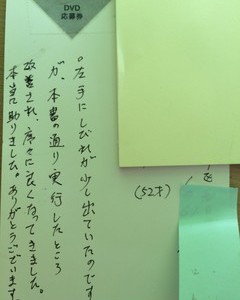 DVD
応募券
○左手にしびれが少し出ていたのです
が、本書の通り実行したところ
改善され、序々に良くなってきました。
本当に助りました。ありがとうございます
(52才)